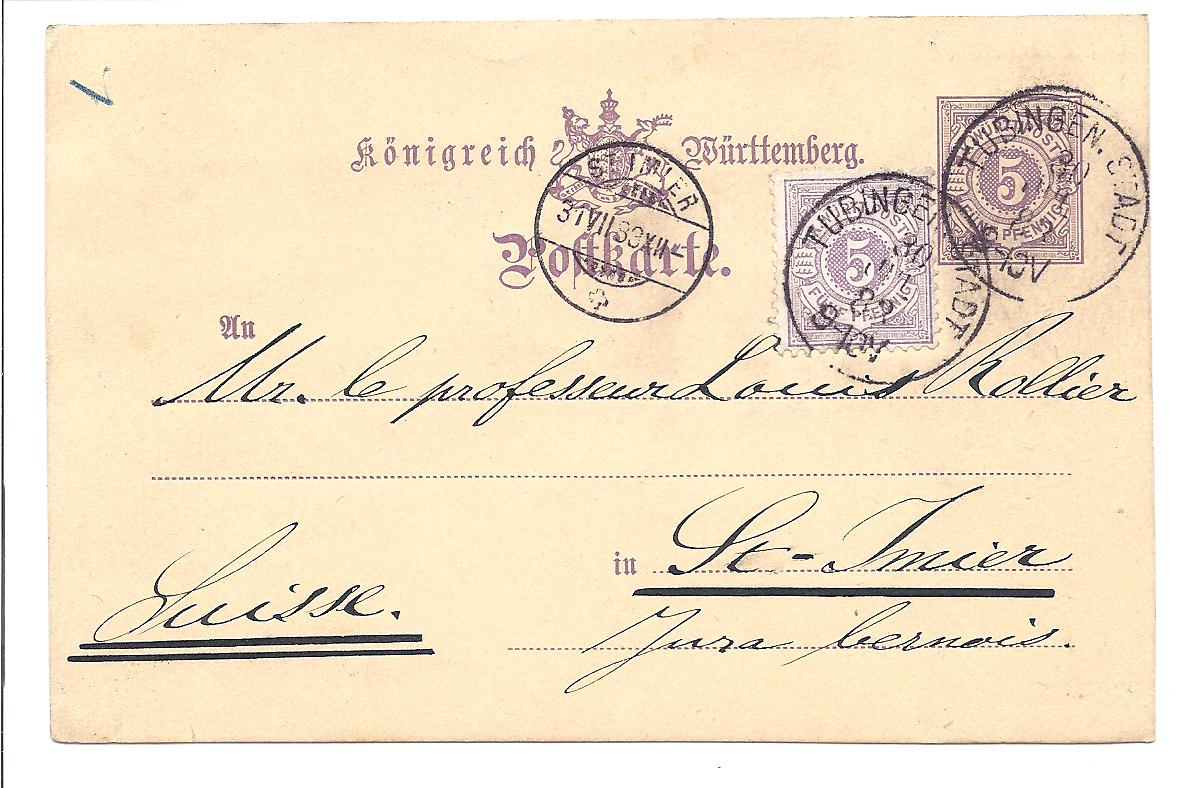 Königreich Württemberg.
Postkarte.
WÜRTT. POST
5
FÜNF PFENNIG
5
FÜNF PFENNIG
TÜBINGEN. STADT
30
TÜBINGEN STADT
30
ST IMIER
31 VII 89 XII
An
Mr. le professeur Louis Rollier
in St-Imier
Suisse.
Jura bernois.